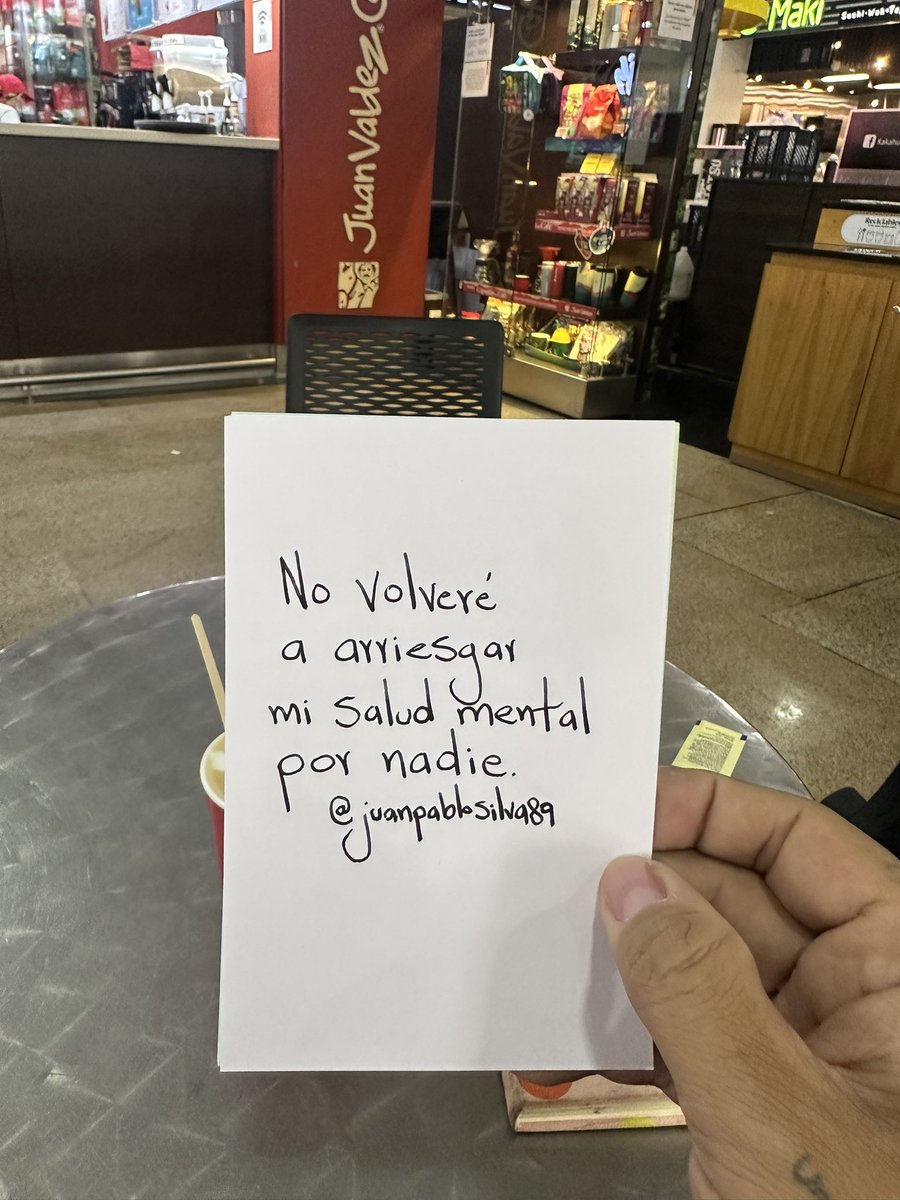 Juan Valdez
Maki
Sushi • Wok • Te
No volveré
a arriesgar
mi salud mental
por nadie.
@juanpablosilva89